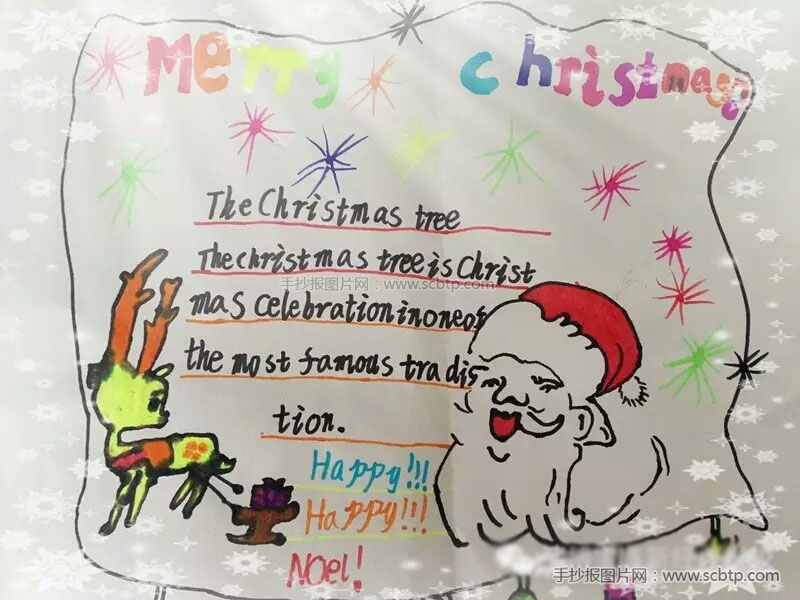 Merry Christmas
The Christmas tree
The christmas tree is Christ
手抄报图片网：www.scbtp.com
mas celebration in one of
the most famous tradis
tion.
Happy!!!
Happy!!!
Noel!
手抄报图片网：www.scbtp.com